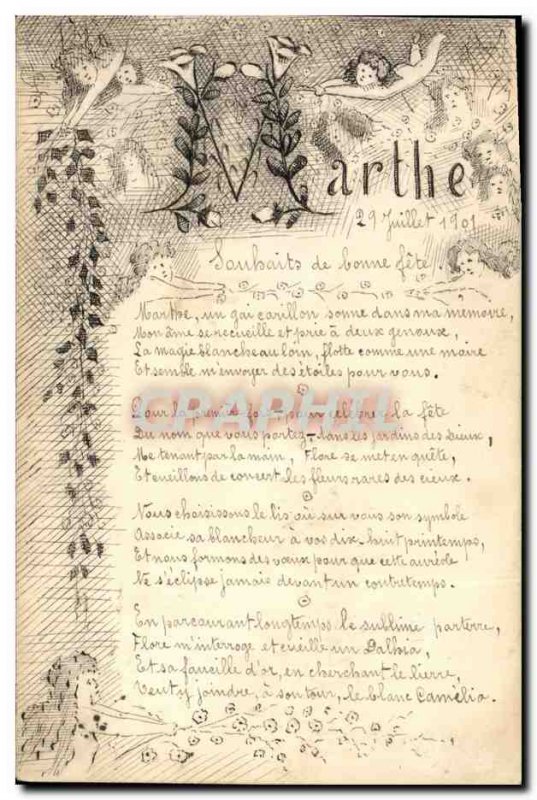 Marthe
29 Juillet 1901
Souhaits de bonne fête.
Marthe, un gai carillon sonne dans ma mémoire,
Mon âme se recueille et prie à deux genoux,
La magie blanche au loin, flotte comme une moire
Et semble m'envoyer des étoiles pour vous.
Pour la première fois, pour célébrer la fête
Du nom que vous portez, dans les jardins des Dieux,
Me tenant par la main, Flore se met en quête,
Et cueillons de concert les fleurs rares des cieux.
Nous choisissons le lis où sur vous son symbole
Associe sa blancheur à vos dix-huit printemps,
Et nous formons des vœux pour que cette auréole
Ne s'éclipse jamais devant un contretemps.
En parcourant longtemps le sublime parterre,
Flore m'interroge et cueille un Dalhia,
Et sa faucille d'or, en cherchant le lierre,
Veut y joindre, à son tour, le blanc Camélia.
CPAPHIL